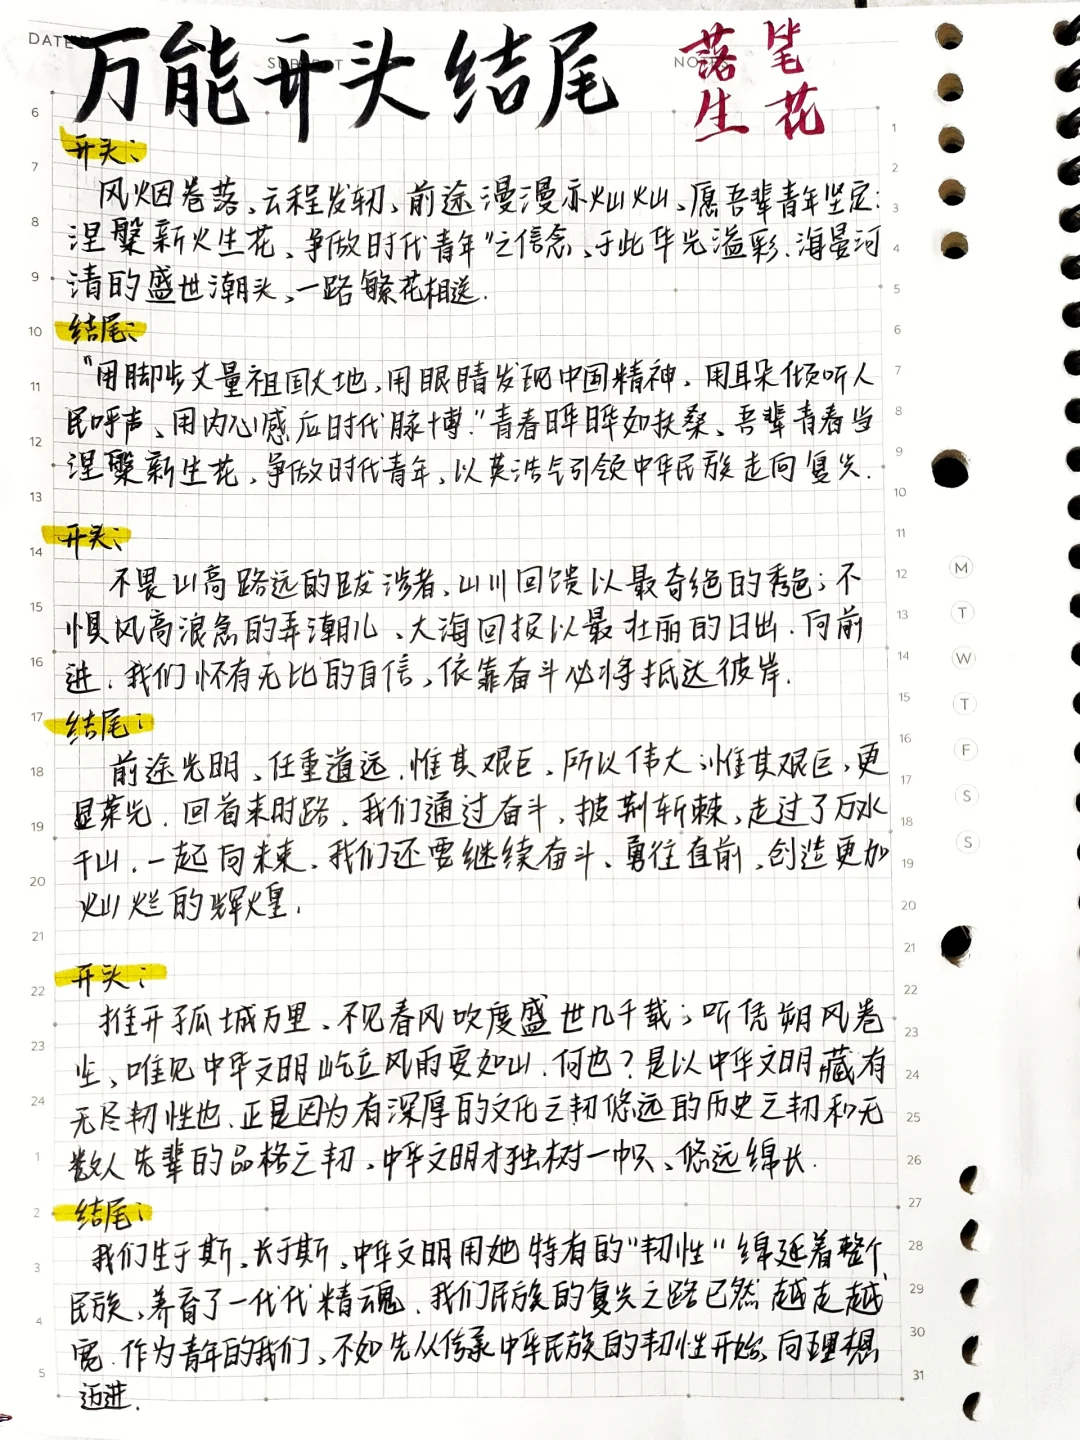 DATE
SUBJECT
NOTE
万能开头结尾
落笔
生花
开头:
风烟卷落、云程发轫、前途漫漫亦灿灿、愿吾辈青年坚定:
涅槃新火生花、争做时代青年"之信念、于此华光溢彩.海晏河
清的盛世潮头、一路繁花相送.
结尾:
"用脚步丈量祖国大地,用眼睛发现中国精神、用耳朵倾听人
民呼声、用内心感应时代脉博."青春晔晔如扶桑、吾辈青春当
涅槃新生花,争做时代青年,以英浩气引领中华民族走向复兴.
开头:
不畏山高路远的跋涉者、山川回馈以最奇绝的秀色;不
惧风高浪急的弄潮儿、大海回报以最壮丽的日出.向前
进.我们怀有无比的自信,依靠奋斗必将抵达彼岸.
结尾:
前途光明、任重道远.惟其艰巨、所以伟大;惟其艰巨,更
显荣光.回首来时路、我们通过奋斗,披荆斩棘、走过了万水
千山.一起向未来、我们还需继续奋斗、勇往直前、创造更加
灿烂的辉煌.
开头:
推开孤城万里、不见春风吹度盛世几千载;听凭朔风卷
尘、唯见中华文明屹立风雨要如山.何也?是以中华文明藏有
无尽韧性也.正是因为有深厚的文化之韧悠远的历史之韧和无
数人先辈的品格之韧、中华文明才独树一帜、悠远绵长.
结尾:
我们生于斯、长于斯,中华文明用她特有的"韧性"绵延着整个
民族、养育了一代代精魂.我们民族的复兴之路已然越走越
宽.作为青年的我们、不如先从传承中华民族的韧性开始、向理想
迈进.
6
7
8
9
10
11
12
13
14
15
16
17
18
19
20
21
22
23
24
1
2
3
4
5
1
2
3
4
5
6
7
8
9
10
11
12
13
14
15
16
17
18
19
20
21
22
23
24
25
26
27
28
29
30
31
M
T
W
T
F
S
S